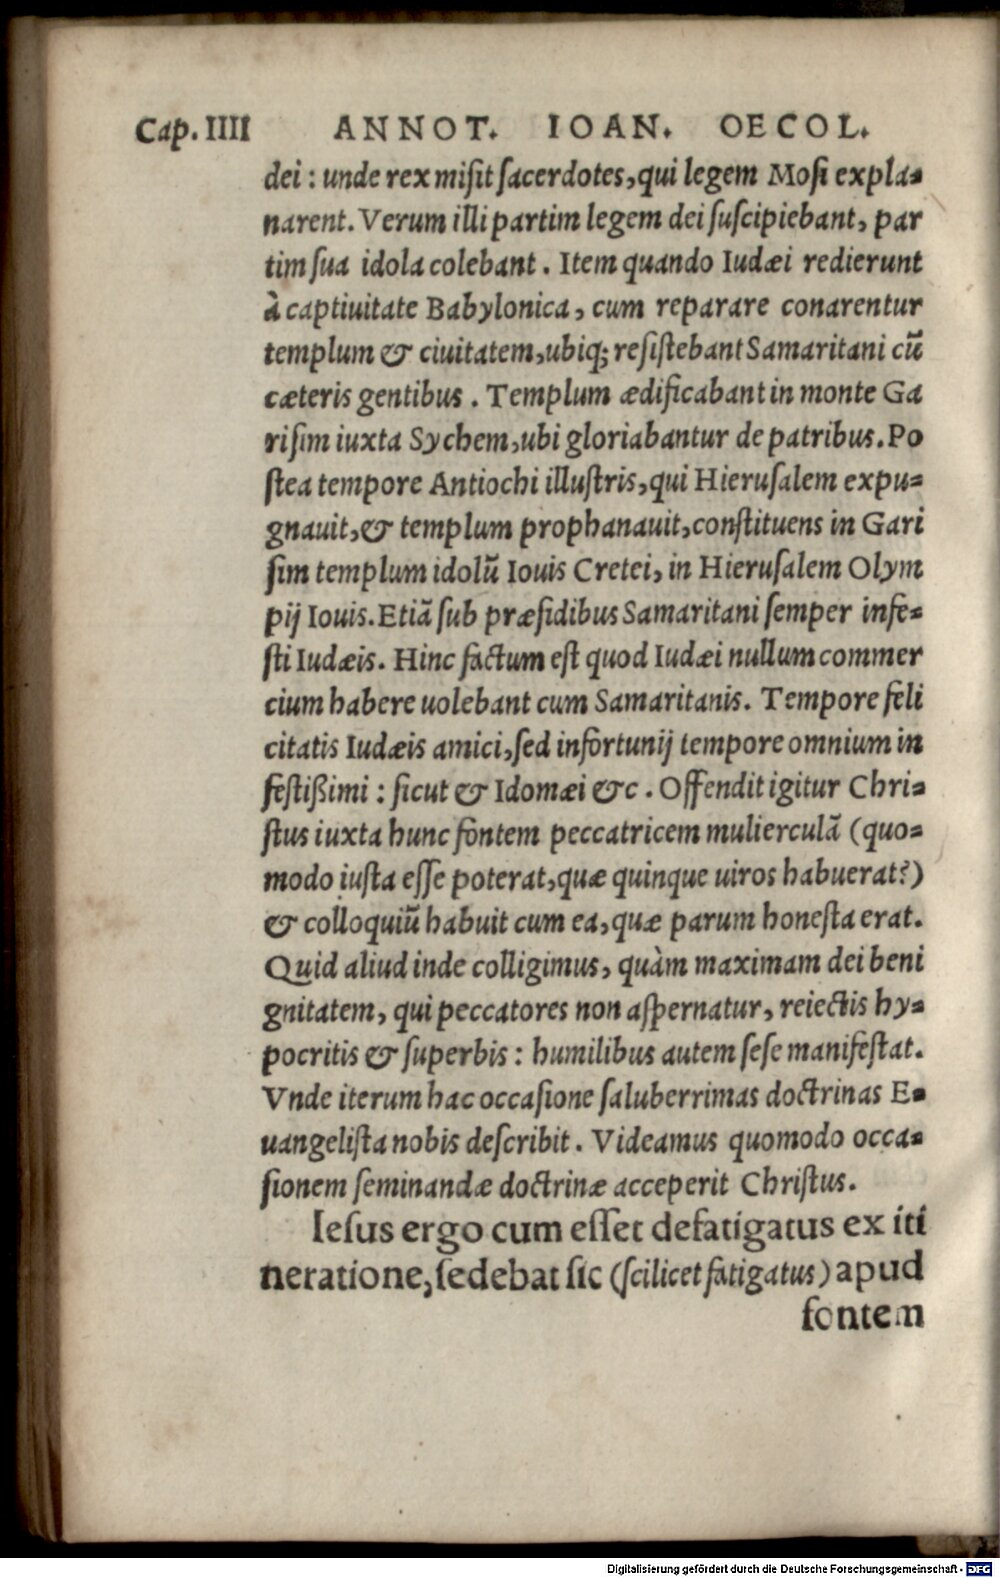 Cap. IIII ANNOT. IOAN. OECOL.
dei : unde rex misit sacerdotes, qui legem Mosi expla-
narent. Verum illi partim legem dei suscipiebant, par
tim sua idola colebant. Item quando Iudæi redierunt
à captiuitate Babylonica, cum reparare conarentur
templum & ciuitatem, ubiq; resistebant Samaritani cū
cæteris gentibus. Templum ædificabant in monte Ga
risim iuxta Sychem, ubi gloriabantur de patribus. Po
stea tempore Antiochi illustris, qui Hierusalem expu-
gnauit, & templum prophanauit, constituens in Gari
sim templum idolū Iouis Cretei, in Hierusalem Olym
pij Iouis. Etiã sub præsidibus Samaritani semper infe-
sti Iudæis. Hinc factum est quod Iudæi nullum commer
cium habere uolebant cum Samaritanis. Tempore feli
citatis Iudæis amici, sed infortunij tempore omnium in
festißimi : sicut & Idomæi &c. Offendit igitur Chri-
stus iuxta hunc fontem peccatricem mulierculã (quo-
modo iusta esse poterat, quæ quinque uiros habuerat?)
& colloquiū habuit cum ea, quæ parum honesta erat.
Quid aliud inde colligimus, quàm maximam dei beni
gnitatem, qui peccatores non aspernatur, reiectis hy-
pocritis & superbis : humilibus autem sese manifestat.
Vnde iterum hac occasione saluberrimas doctrinas E-
uangelista nobis describit. Videamus quomodo occa-
sionem seminandæ doctrinæ acceperit Christus.
Iesus ergo cum esset defatigatus ex iti
neratione, sedebat sic (scilicet fatigatus) apud
fontem
Digitalisierung gefördert durch die Deutsche Forschungsgemeinschaft - DFG